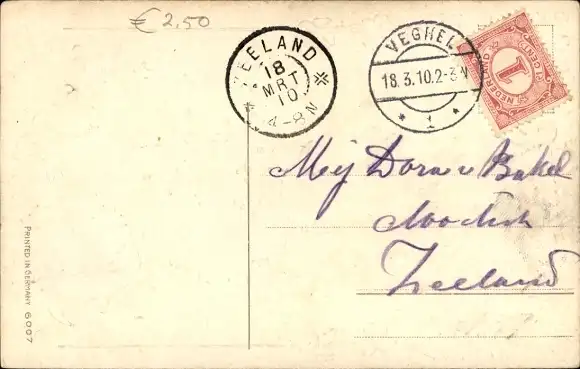 € 2.50
ZEELAND
18
MRT
10
4-8N
VEGHEL
18.3.10.2-3N
1
NEDERLAND
1
CENT
Mej Dora v Bakel
Zeeland
PRINTED IN GERMANY 6007